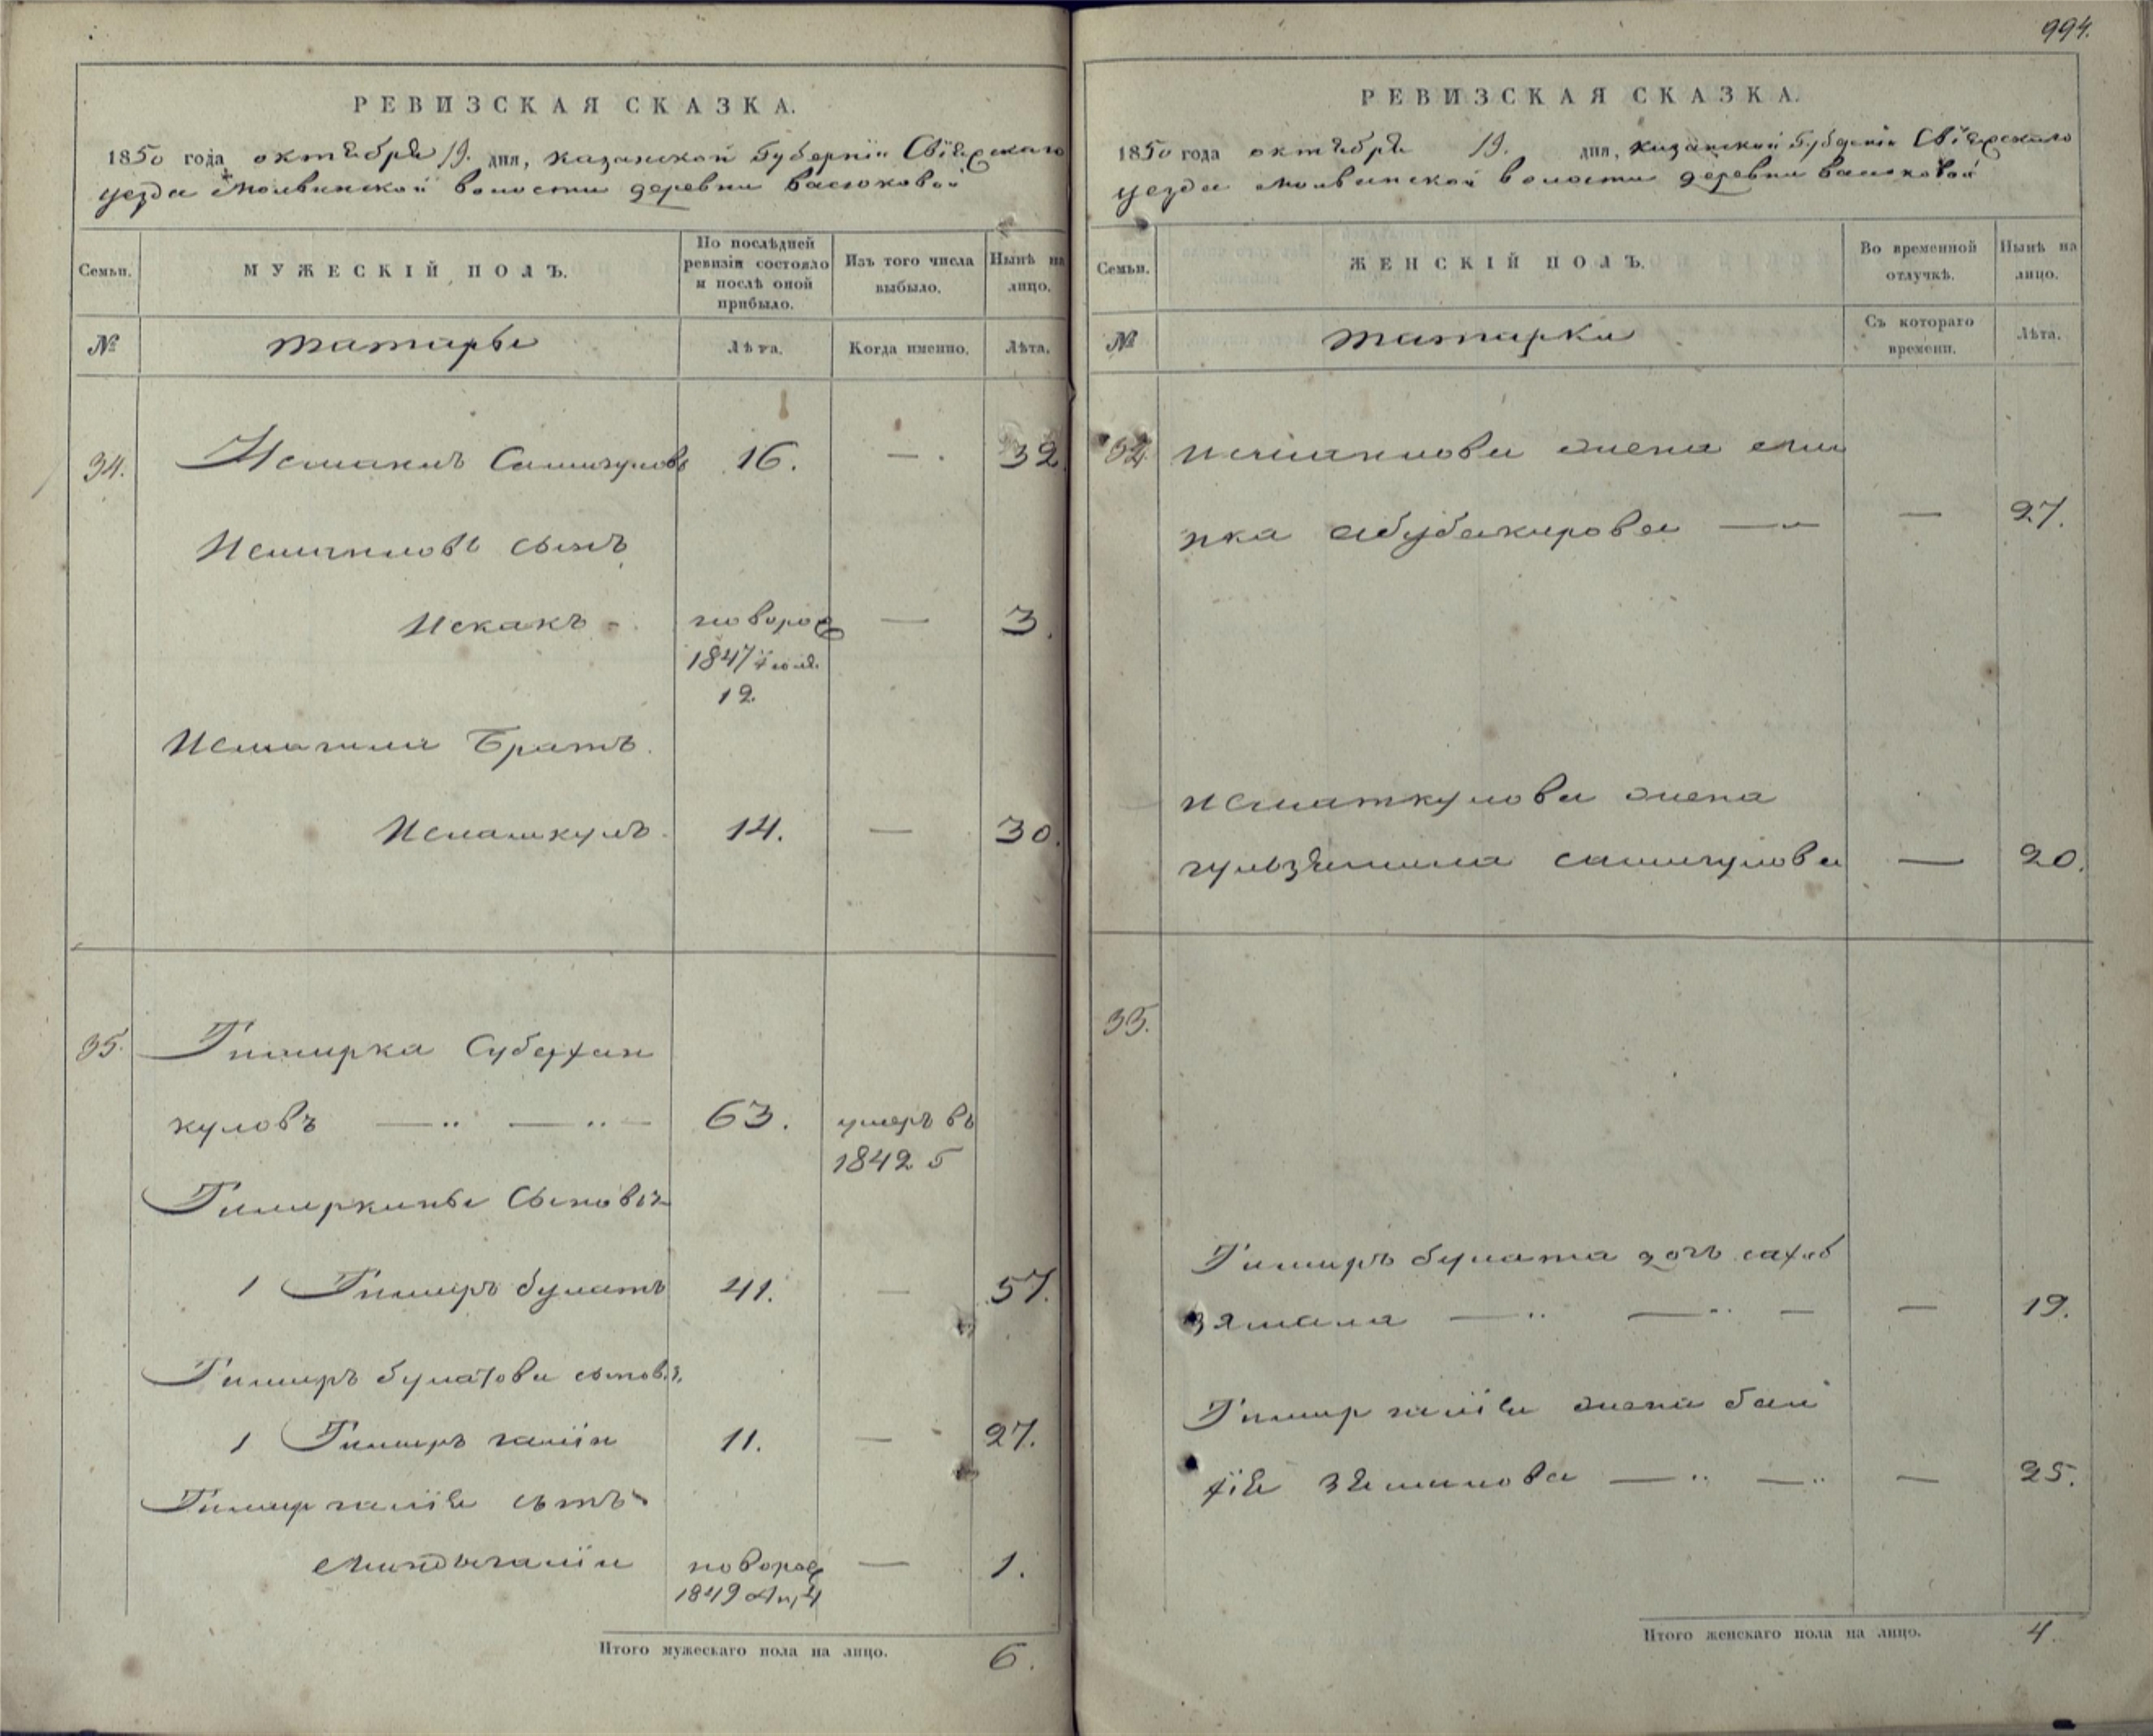 994.
РЕВИЗСКАЯ СКАЗКА.
1850 года октября 19. дня, Казанской Губернïи Свïяжскаго
уезда Молвинской волости деревни Васюковой
Семьи.
МУЖЕСКІЙ ПОЛЪ.
По послѣдней ревизіи состояло и послѣ оной прибыло.
Изъ того числа выбыло.
Нынѣ на лицо.
№
татары
Лѣта.
Когда именно.
Лѣта.
34. Исмаилъ Самигуловъ 16. — 32
Исмаиловъ сынъ
Искакъ — 3.
1847 Iюля
12
Исмагила Братъ.
Исматкулъ 14. — 30.
35. Тимирка Субехан
куловъ — — — 63. умеръ въ
1842
Тимиркины Сыновья
1 Тимиръ булатъ 41. — 57.
Тимиръ булатова сынов.
1 Тимиръ галïи 11. — 27.
Тимир галïя сынъ
Миндыгалïи новорож — 1.
1849 Ап, 4
Итого мужескаго пола на лицо. 6.
РЕВИЗСКАЯ СКАЗКА.
1850 года октября 19. дня, Казанской Губернïи Свïяжскаго
уезда Молвинской волости деревни Васюковой
Семьи.
ЖЕНСКІЙ ПОЛЪ.
Во временной отлучкѣ.
Нынѣ на лицо.
№
татарки
Съ котораго времени.
Лѣта.
34. Исмаилова жена
Абубакирова — — 27.
Исматкулова жена
гульзямила самигулова — 20.
35.
Тимиръ булата дочь сахиб
зямала — — — — 19.
Тимир галïя жена баги
хïя зяминова — — — 25.
Итого женскаго пола на лицо. 4.